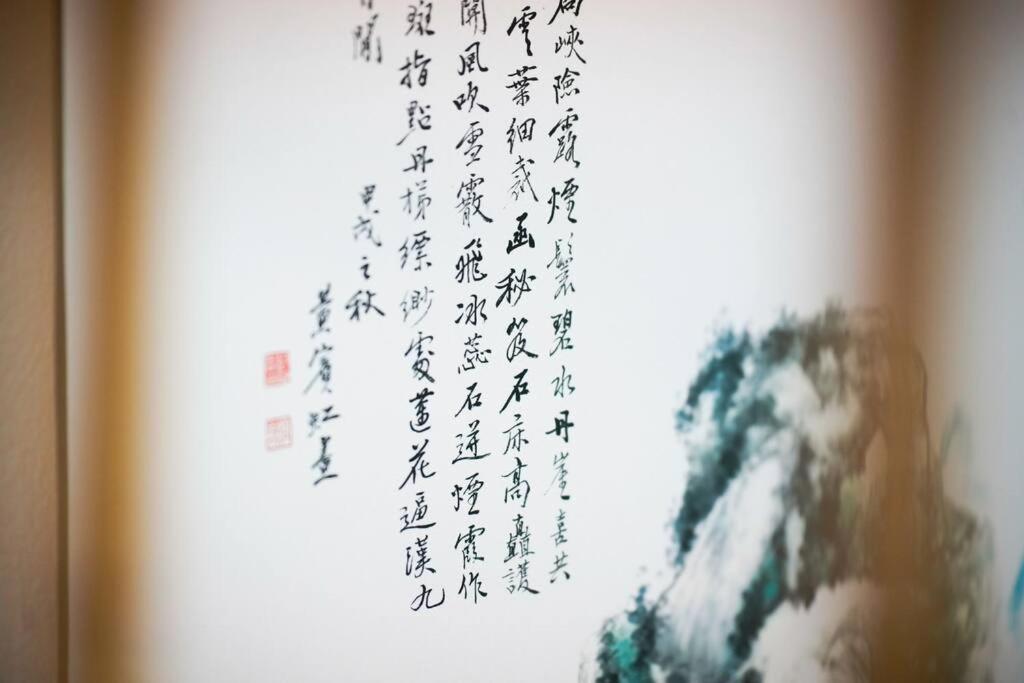 峽險露煙鬟碧水丹崖喜共
雲葉細裁函秘笈石床高矗護
開風吹雪霰飛冰蕊石迸煙霞作
斑指點丹梯縹緲處蓮花逼漢九
閒
甲戌之秋
黃賓虹畫